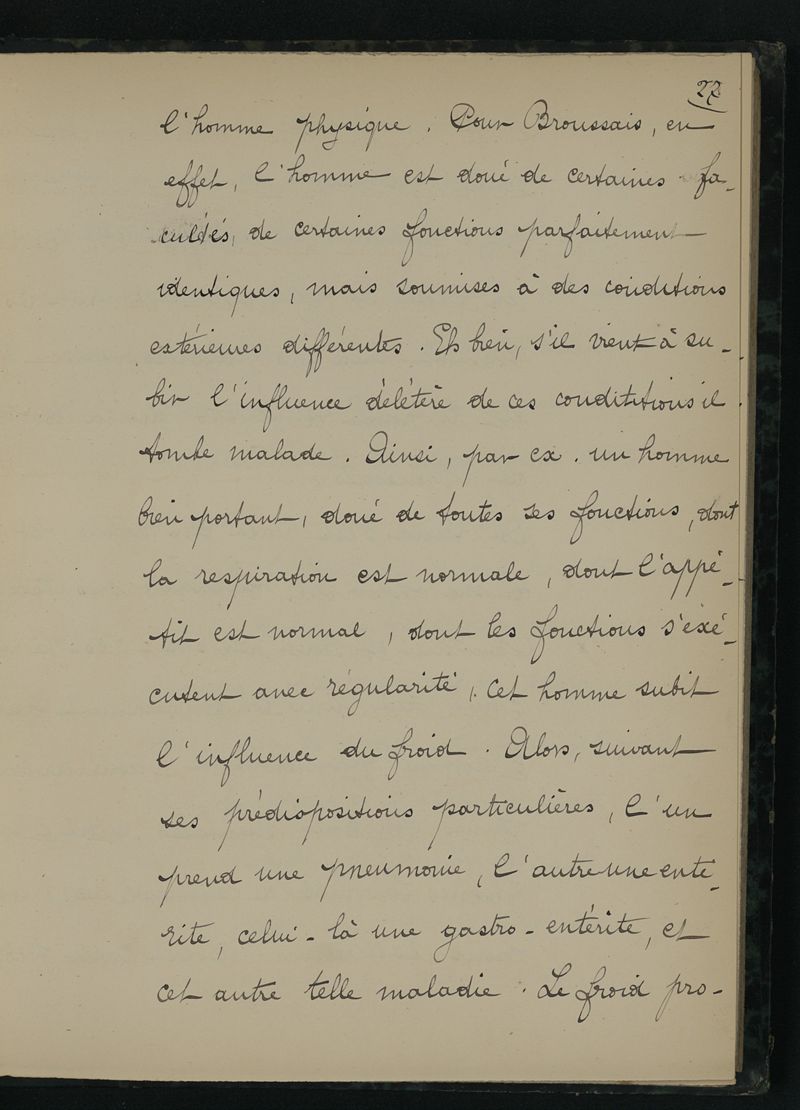 27
l'homme physique. Pour Broussais, en
effet, l'homme est doué de certaines fa-
cultés, de certaines fonctions parfaitement
identiques, mais soumises à des conditions
extérieures différentes. Eh bien, s'il vient à su-
bir l'influence délétère de ces condititions il
tombe malade. Ainsi, par ex. un homme
bien portant, doué de toutes ses fonctions, dont
la respiration est normale, dont l'appé-
tit est normal, dont les fonctions s'éxé-
cutent avec régularité, cet homme subit
l'influence du froid. Alors, suivant
ses prédispositions particulières, l'un
prend une pneumonie, l'autre une enté-
rite, celui-là une gastro-entérite, et
cet autre telle maladie. Le froid pro-